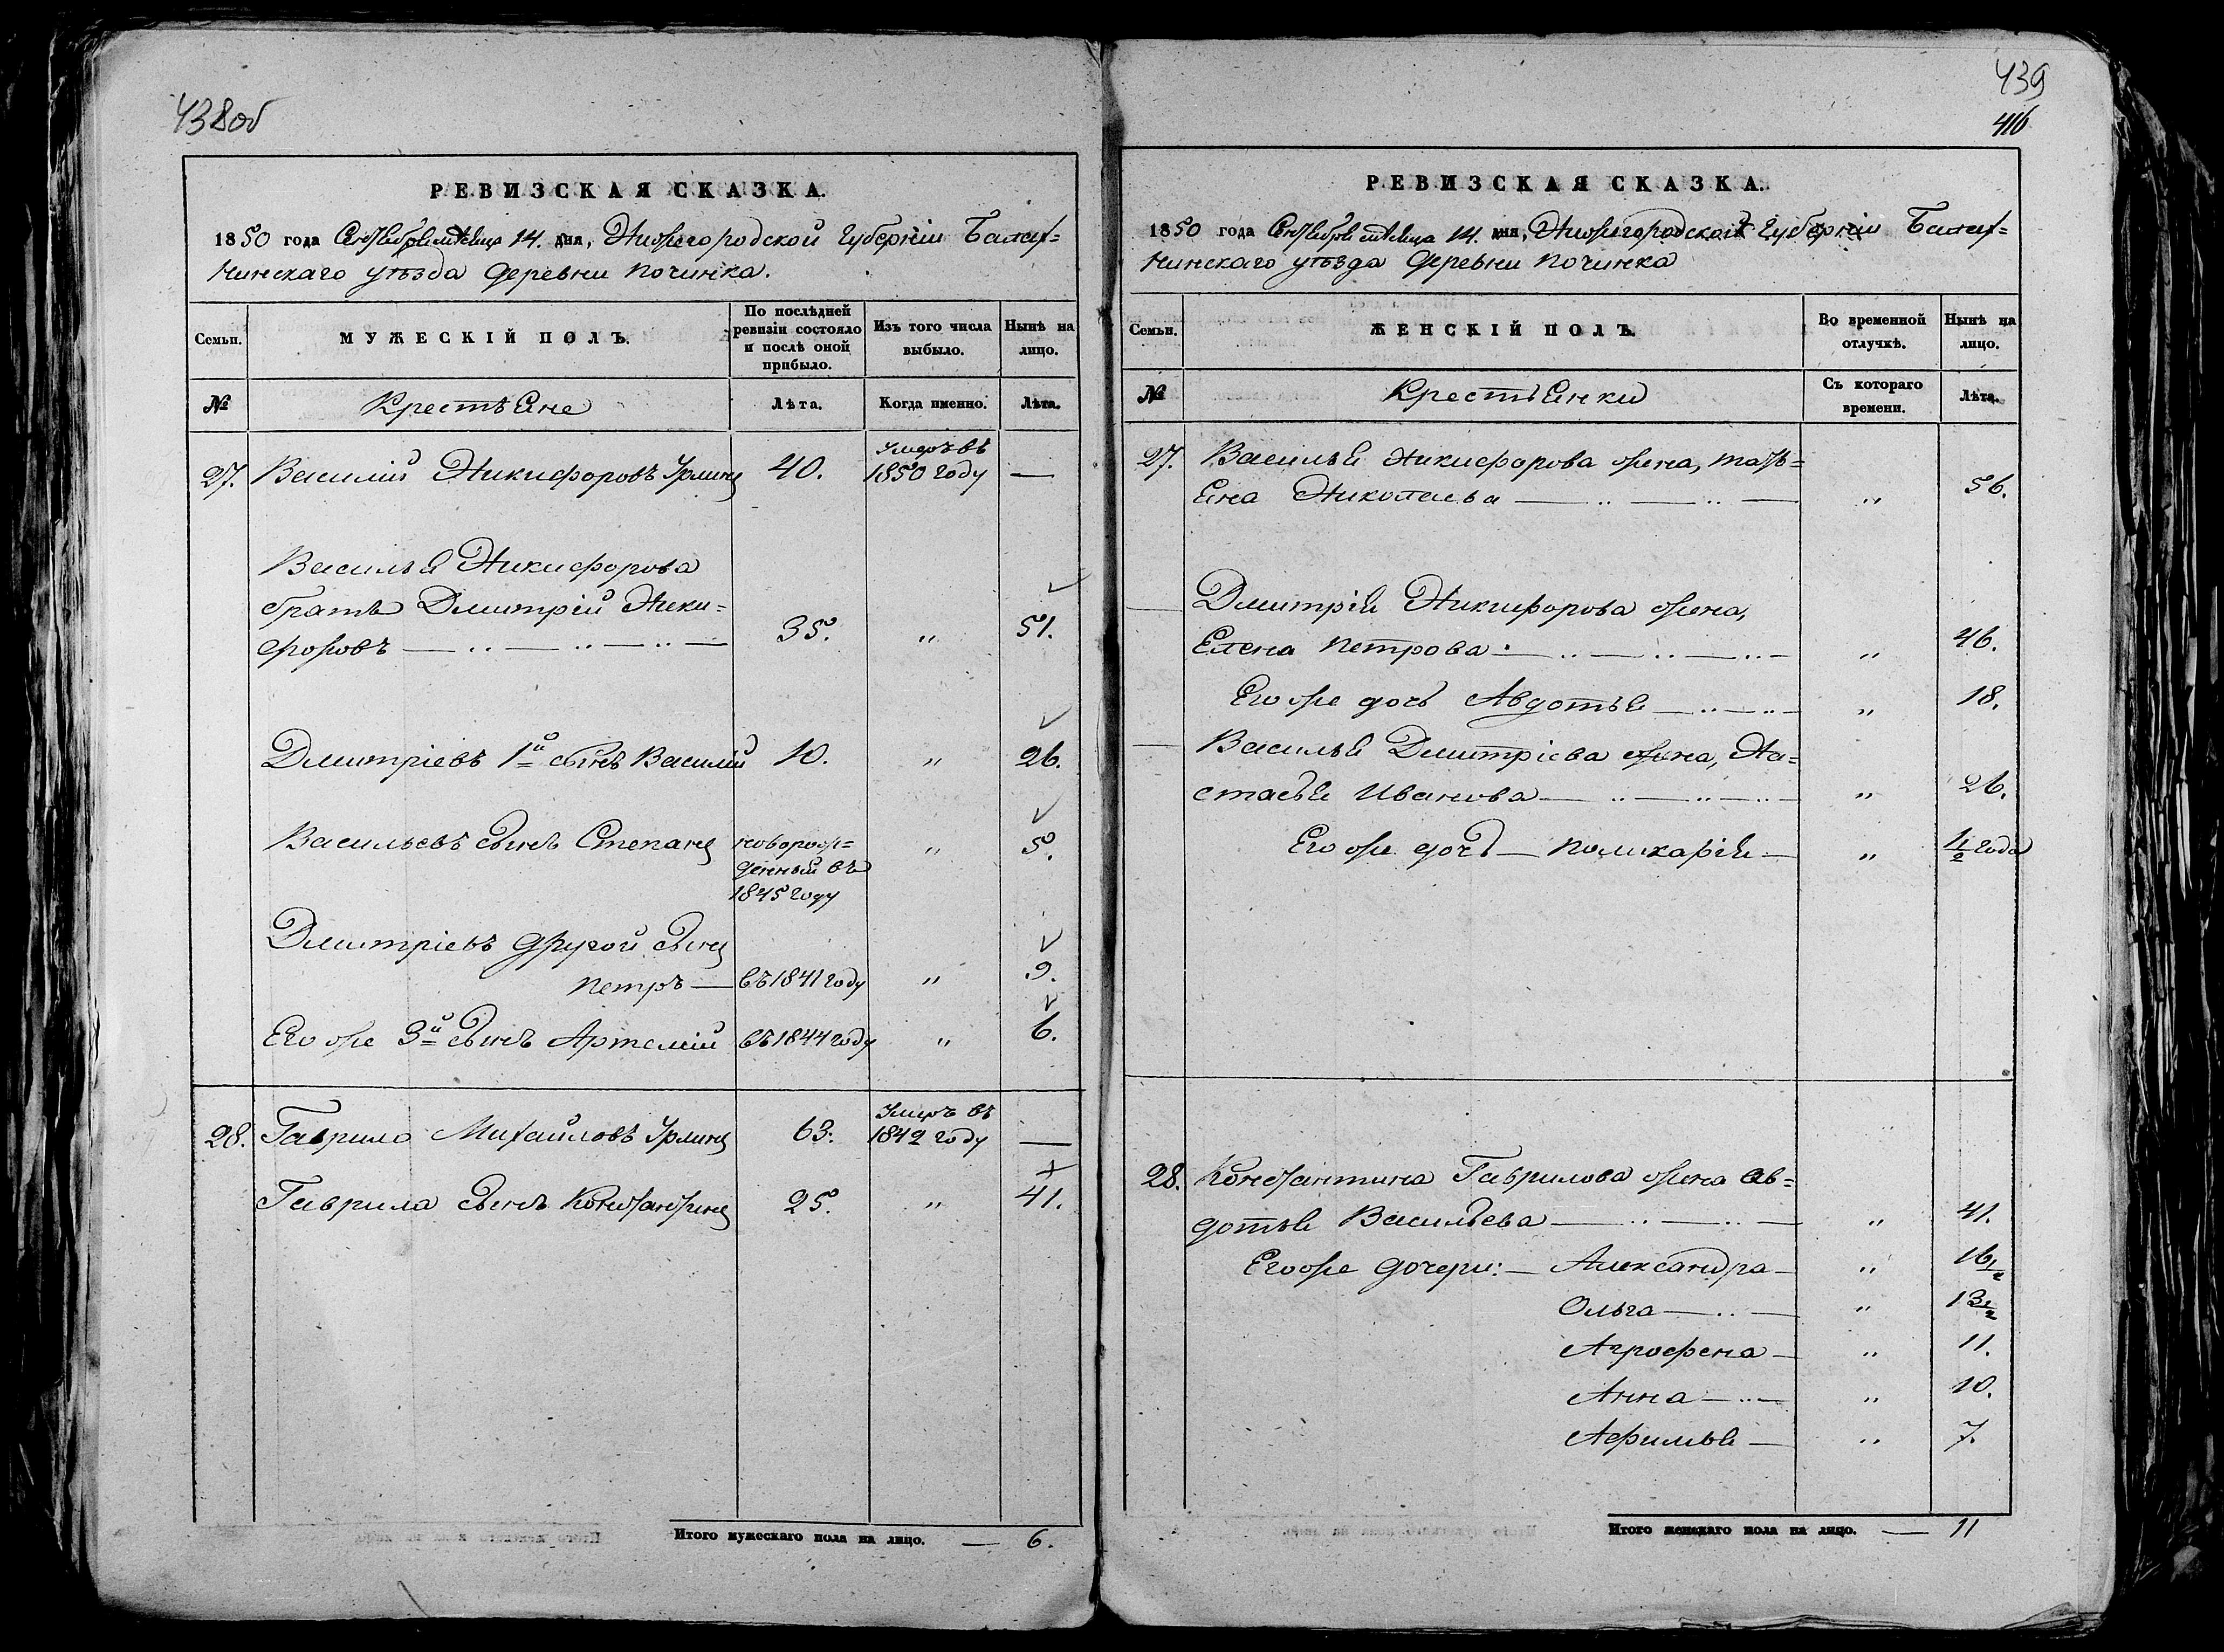 438об
РЕВИЗСКАЯ СКАЗКА.
1850 года Сентября месяца 14. дня, Нижегородской Губернiи Балах=
нинскаго уѣзда деревни Починка.
Семьи. МУЖЕСКІЙ ПОЛЪ. По послѣдней ревизіи состояло и послѣ оной прибыло. Изъ того числа выбыло. Нынѣ на лицо.
№ Крестьяне Лѣта. Когда именно. Лѣта.
27. Василій Никифоровъ Урлинъ 40. Умеръ въ 1850 году —
Василья Никифорова
братъ Дмитрій Ники=
форовъ 35. " 51.
Дмитріевъ 1й сынъ Василій 10. " 26.
Васильевъ сынъ Степанъ новорож=
денный въ
1845 году " 5.
Дмитріевъ другой сынъ
Петръ — въ 1841 году " 9.
Его же 3й сынъ Артемій въ 1844 году " 6.
28. Гаврило Михайловъ Урлинъ 63. Умеръ въ 1842 году —
Гаврила сынъ Константинъ 25. " 41.
Итого мужескаго пола на лицо. — 6.
439
416
РЕВИЗСКАЯ СКАЗКА.
1850 года Сентября месяца 14. дня, Нижегородской Губерніи Балах=
нинскаго уѣзда деревни Починка
Семьи. ЖЕНСКІЙ ПОЛЪ. Во временной отлучкѣ. Нынѣ на лицо.
№ Крестьянки Съ котораго времени. Лѣта.
27. Василья Никифорова жена, Тать=
яна Николаева " 56.
Дмитрія Никифорова жена,
Елена Петрова " 46.
Его же дочь Авдотья " 18.
Василья Дмитріева жена, На=
стасья Иванова " 26.
Его же дочь — Поликарія — " 1/2 года
28. Константина Гаврилова жена Ав=
дотья Васильева " 41.
Его же дочери: — Александра — " 16 1/2
Ольга " 13 1/2
Агрофена — " 11.
Анна " 10.
Афимья — " 7.
Итого женскаго пола на лицо. — 11